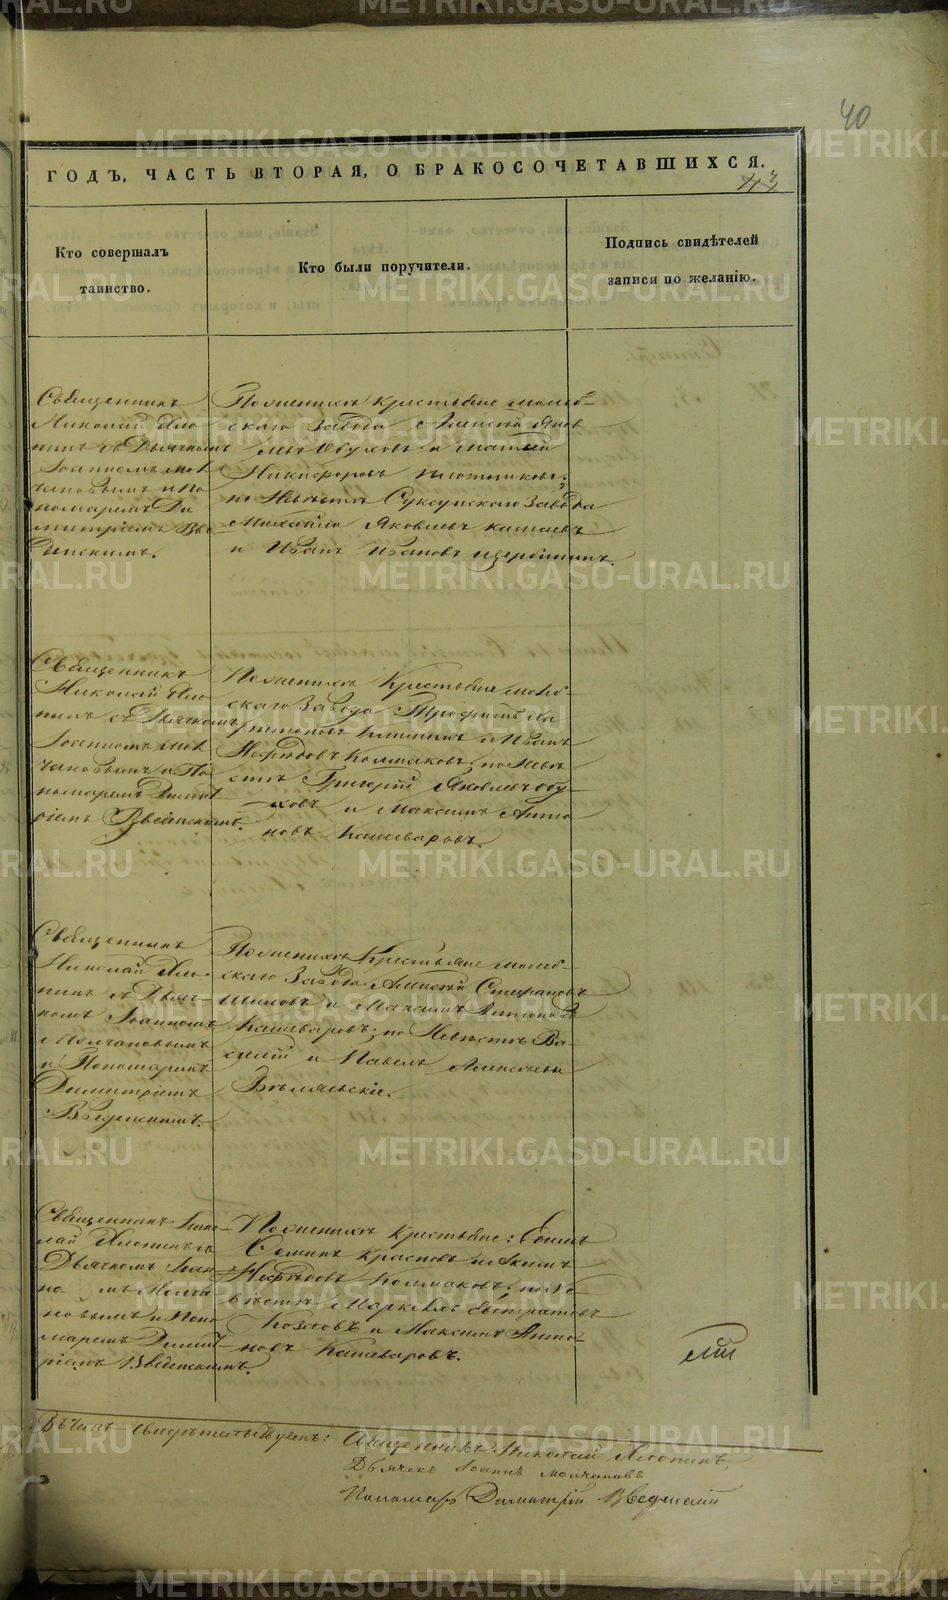 40
ГОДЪ, ЧАСТЬ ВТОРАЯ, О БРАКОСОЧЕТАВШИХСЯ.
Кто совершалъ
таинство.
Кто были поручители.
Подпись свидѣтелей
записи по желанію.
Священникъ
Николай Хло
пинъ съ Дьячкомъ
Іоанномъ Мол
чановымъ и По
номаремъ Ди
митріемъ Вве
денскимъ.
По женихѣ Крестьяне Молеб-
скаго Завода Алексѣй Яков
левъ Обуховъ и Матвей
Никифоровъ Плотниковъ;
по Невѣстѣ Суксунскаго Завода
Михайло Яковлевъ
и Иванъ Ивановъ Щербининъ.
Священникъ
Николай Хло
пинъ съ Дьячкомъ
Іоанномъ Мол
чановымъ и По
номаремъ Димит
ріемъ Введенскимъ.
По женихѣ Крестьяне Молеб
скаго Завода Трофимъ
и Иванъ
Нефедовъ Колмаковъ; по Невѣ
стѣ Григорій Яковлевъ Обу-
ховъ и Максимъ Анто
новъ Кашеваровъ.
Священникъ
Николай Хло-
пинъ съ Дьяч-
комъ Іоанномъ
Молчановымъ
и Пономаремъ
Димитріемъ
Введенскимъ.
По женихѣ Крестьяне Молеб-
скаго Завода Алексѣй Стефановъ
и Максимъ Антоновъ
Кашеваровъ; по Невѣстѣ Ва-
силій и Павелъ Алексѣевы
Священникъ Нико
лай Хлопинъ съ
Дьячкомъ Іоан
номъ Молча
новымъ и Поно
маремъ Димит
ріемъ Введенскимъ.
По женихѣ Крестьяне:
Семинъ и Якимъ
Нефедовъ Колмаковъ; по Не
вѣстѣ Маркелъ Евстратовъ
Козловъ и Максимъ Анто
новъ Кашеваровъ.
Въ чемъ свидѣтельствуемъ: Священникъ Николай Хлопинъ,
Дьячекъ Іоаннъ Молчановъ
Пономарь Димитрій Введенскій
METRIKI.GASO-URAL.RU